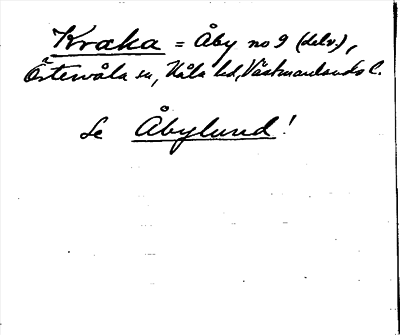 Kraka = Åby no 9 (delv.),
Östervåla sn, Våla hd, Västmanlands l.
Se Åbylund!